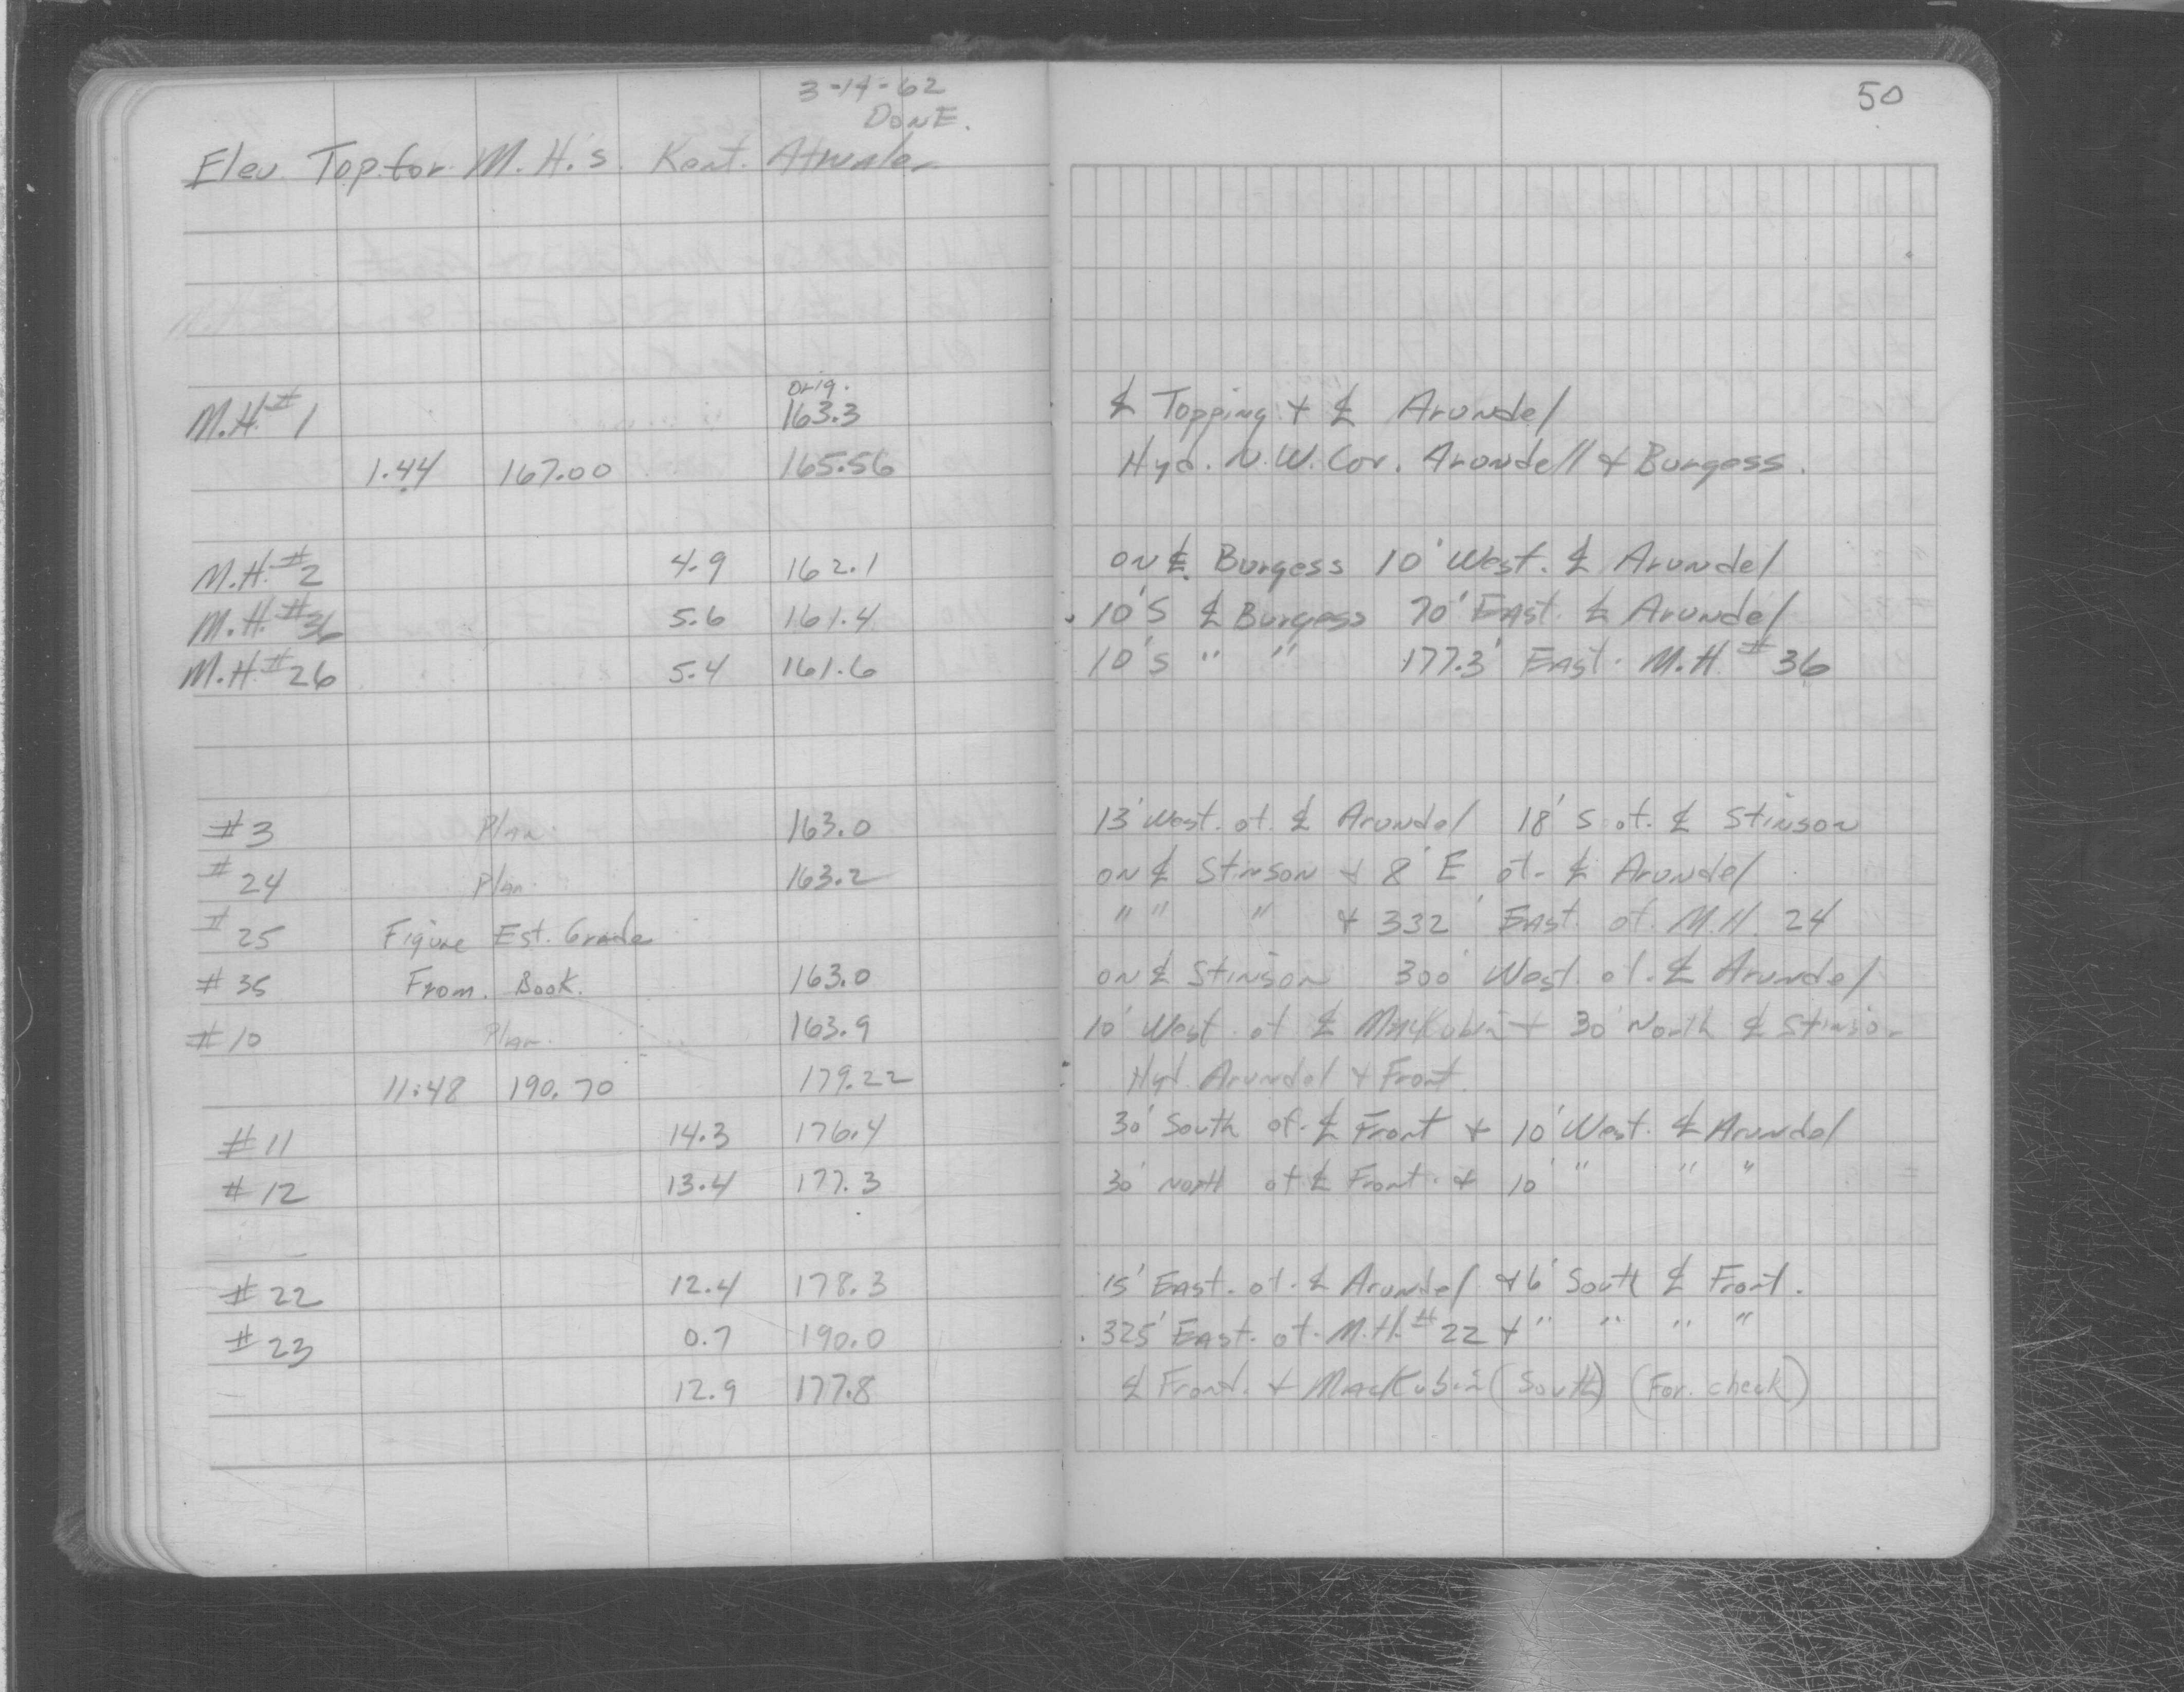 3-14-62
DONE.
50
Elev. Top. for. M.H.'s. Kent.
orig.
M.H. #1 163.3 ℄ Topping + ℄ Arundel
1.44 167.00 165.56 Hyd. N.W. Cor. Arundell + Burgess.
M.H. #2 4.9 162.1 on ℄ Burgess 10' West. ℄ Arundel
M.H. #36 5.6 161.4 10'S ℄ Burgess 70' East. ℄ Arundel
M.H. #26 5.4 161.6 10's " " 177.3' East. M.H. #36
#3 Plan. 163.0 13' West. of. ℄ Arundel 18' S. of. ℄ Stinson
#24 Plan. 163.2 on ℄ Stinson + 8' E of. ℄ Arundel
#25 Figure Est. Grade " " " + 332' East. of. M.H. 24
#35 From. Book. 163.0 on ℄ Stinson 300' West. of. ℄ Arundel
#10 Plan. 163.9 10' West. of ℄ Mackubin + 30' North ℄ Stinson
11.48 190.70 179.22 Hyd. Arundel + Front.
#11 14.3 176.4 30' South of. ℄ Front + 10' West. ℄ Arundel
#12 13.4 177.3 30' North of ℄ Front. + 10' " " "
#22 12.4 178.3 15' East. of. ℄ Arundel + 6' South ℄ Front.
#23 0.7 190.0 325' East. of. M.H. #22 + " " " "
12.9 177.8 ℄ Front. + Mackubin (South) (For. check)